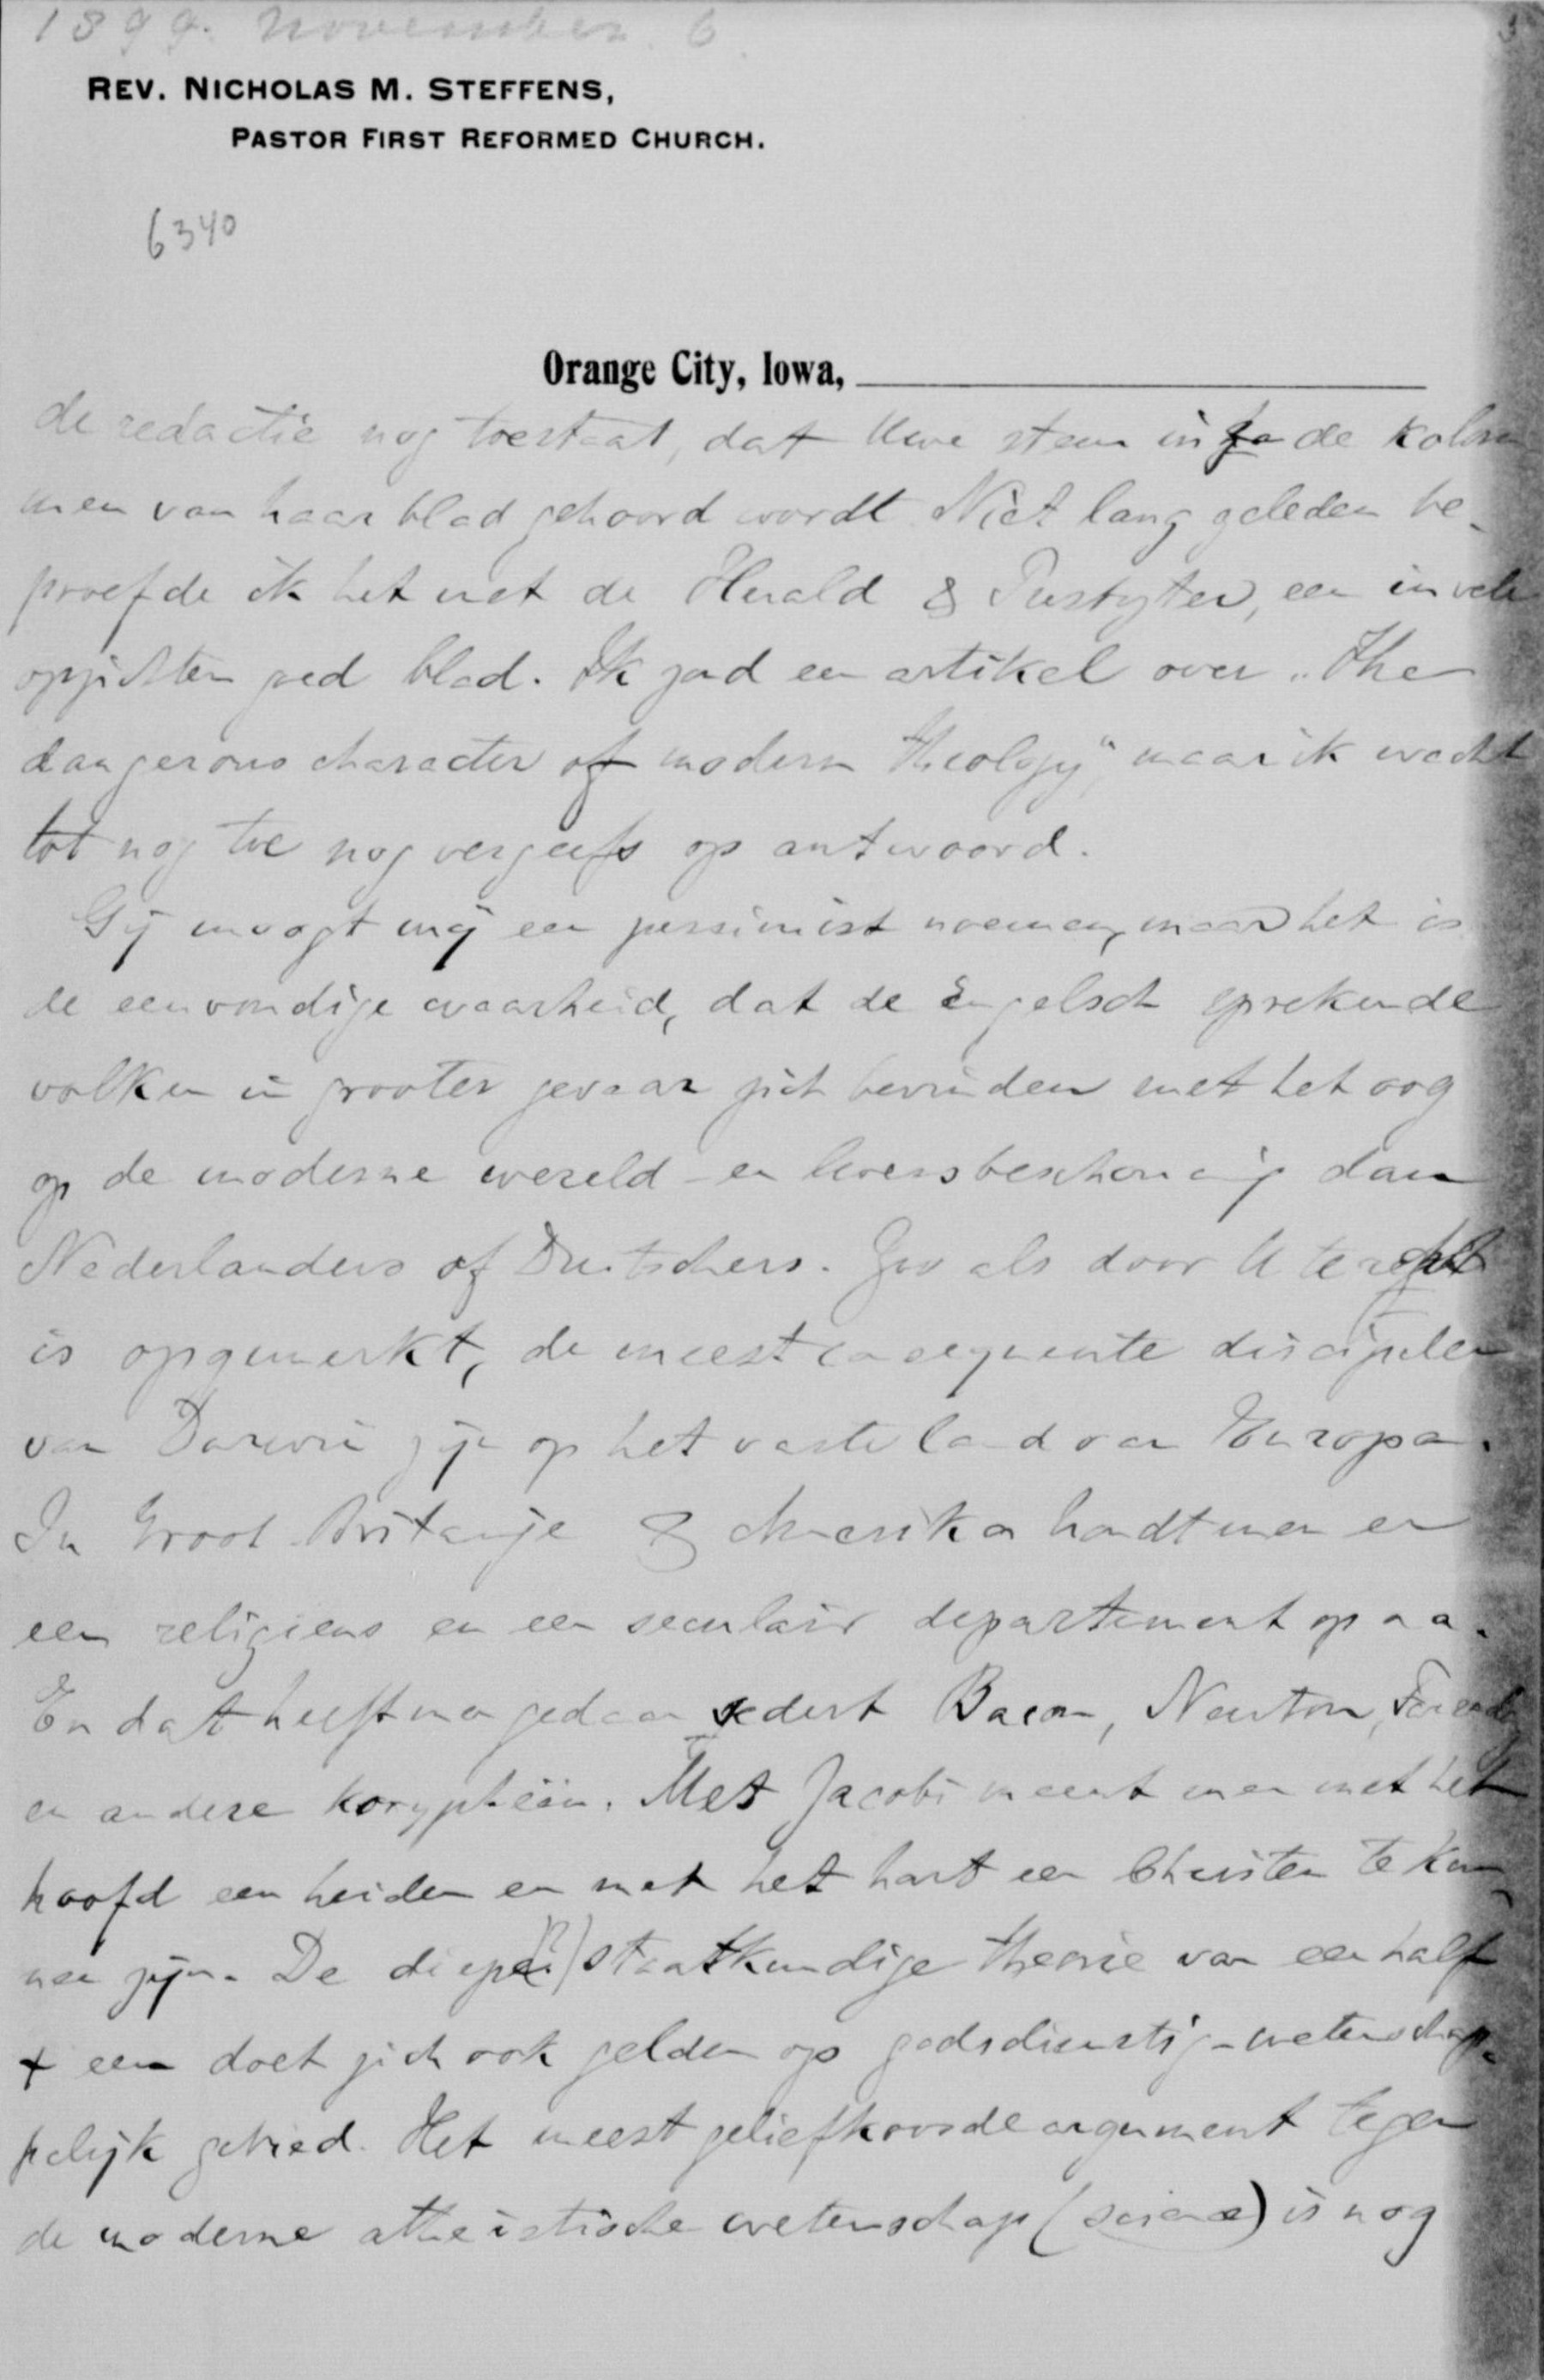 1899. November 6
REV. NICHOLAS M. STEFFENS,
PASTOR FIRST REFORMED CHURCH.
6340
Orange City, Iowa,
de redactie nog toestaat, dat Uwe stem in de kolom
men van haar blad gehoord wordt. Niet lang geleden be-
proefde ik het met de Herald & Presbyter, een in vele
opzichten goed blad. Ik zond een artikel over „The
dangerous character of modern theology", maar ik wacht
tot nog toe nog vergeefs op antwoord.
Gij moogt mij een pessimist noemen, maar het is
de eenvoudige waarheid, dat de Engelsch sprekende
volken in grooter gevaar zich bevinden met het oog
op de moderne wereld- en levensbeschouwing dan
Nederlanders of Duitschers. Zoo als door U te recht
is opgemerkt, de meest consequente discipelen
van Darwin zijn op het vaste land van Europa.
In Groot Brittanje & Amerika houdt men er
een religieus en een seculair departement op na.
En dat heeft men gedaan sedert Bacon, Newton, Faraday
en andere koryphëen. Met Jacobi meent men met het
hoofd een heiden en met het hart een Christen te kun-
nen zijn. De diepe (?) staatkundige theorie van een half
+ een doet zich ook gelden op godsdienstig-wetenschap-
pelijk gebied. Het meest geliefkoosde argument tegen
de moderne atheistische wetenschap (science) is nog